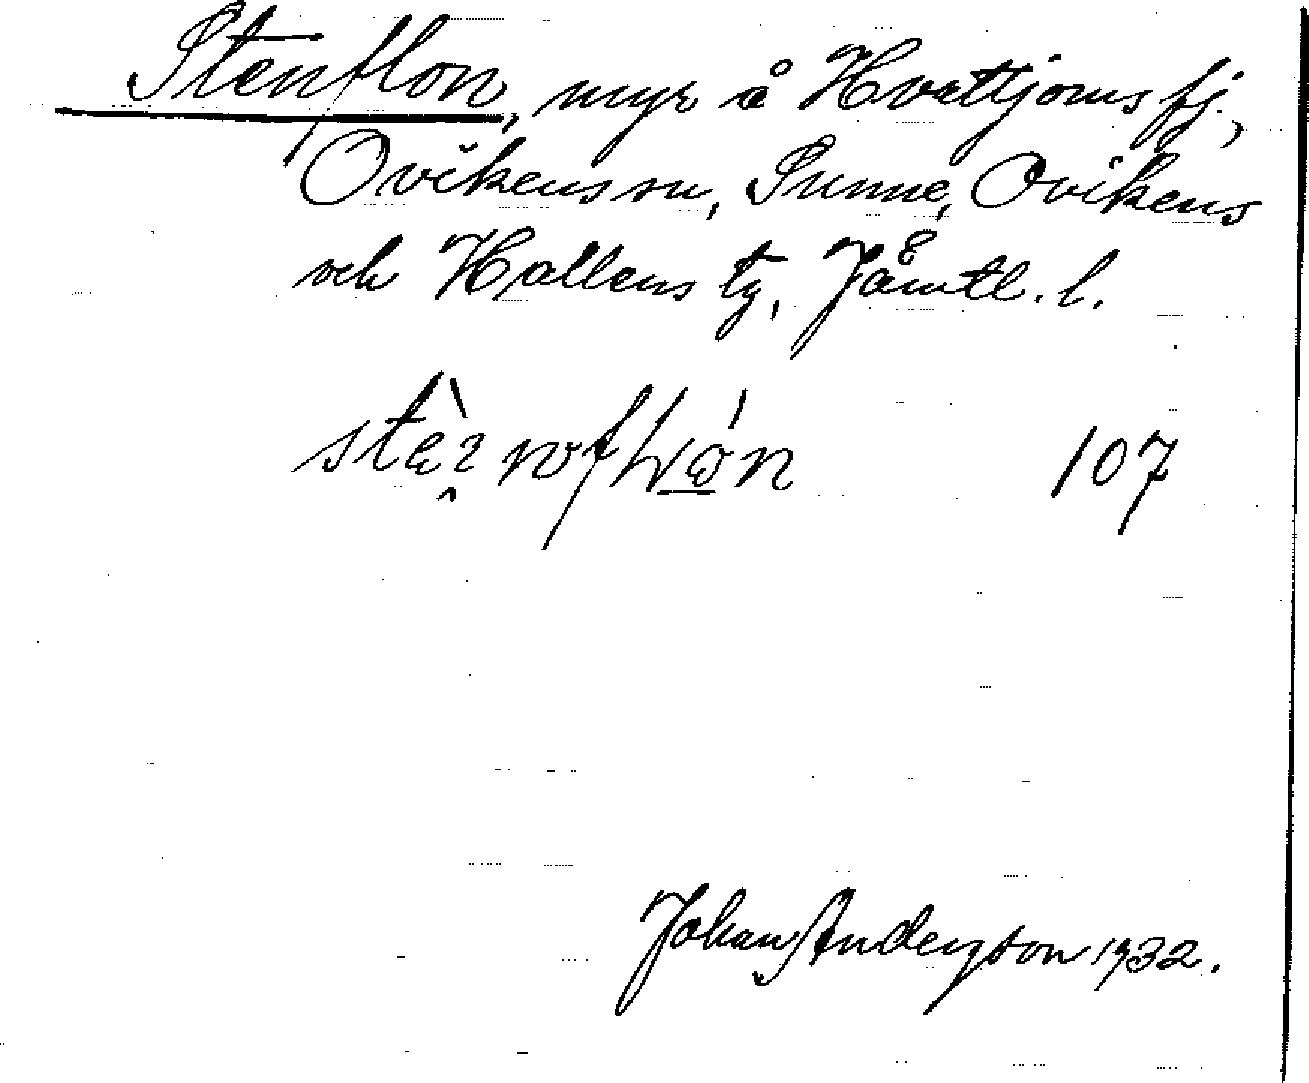 Stenflon, myr å Hvattjoms fj.,
Ovikens sn, Sunne, Ovikens
och Hallens tg, Jämtl. l.
107
Johan Anderson 1932.